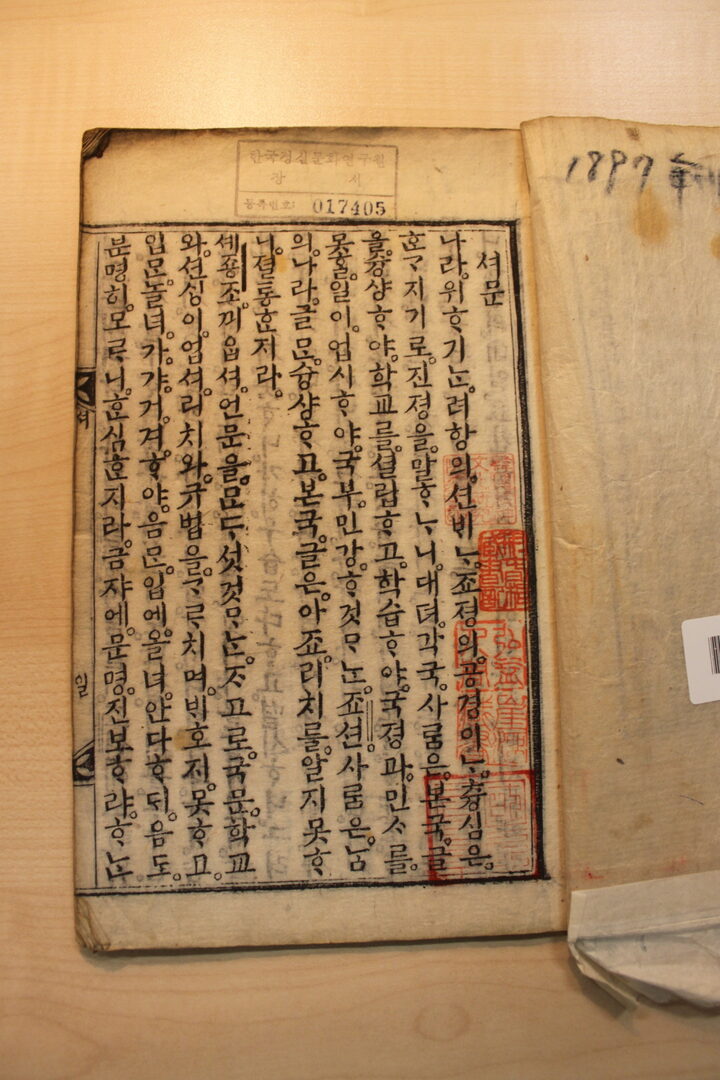 한국정신문화연구원
장 서
등록번호: 017405
1897
셔문
나라。위ᄒᆞ기ᄂᆞᆫ。려항의。션ᄇᆡᄂᆞ。죠졍의。공경이ᄂᆞ。츙심은。
ᄒᆞᆫᄀᆞ지기로。진졍을。말ᄒᆞᄂᆞ니。대뎌。각국。사ᄅᆞᆷ은。본국글
을。슝샹ᄒᆞ야。학교를。셜립ᄒᆞ고。학습ᄒᆞ야。국졍과。민ᄉᆞ를。
못ᄒᆞᆯ일이。업시ᄒᆞ야。국부。민강ᄒᆞ것ᄆᆞᄂᆞᆫ。죠션사ᄅᆞᆷ은。ᄂᆞᆷ
의。나라。글ᄆᆞᆫ。슝샹ᄒᆞ고。본국글은。아죠。리치를。알지못ᄒᆞ
니。졀통ᄒᆞᆫ지라。
셰죵죠끠읍셔。언문을。ᄆᆞᆫ드섯것ᄆᆞᄂᆞᆫ。ᄌᆞ고로。국문학교
와。션ᄉᆡᆼ이업셔。리치와。규법을。ᄀᆞᄅᆞ치며。ᄇᆡ호지。못ᄒᆞ고。
입ᄆᆞᆫ놀녀。가갸。거겨。ᄒᆞ야。음ᄆᆞᆫ。입에。올녀。안다ᄒᆞ되。음도。
분명히。모ᄅᆞ니。ᄒᆞᆫ심ᄒᆞᆫ지라。금쟈에。문명。진보ᄒᆞ랴。ᄒᆞᄂᆞᆫ
셔
일